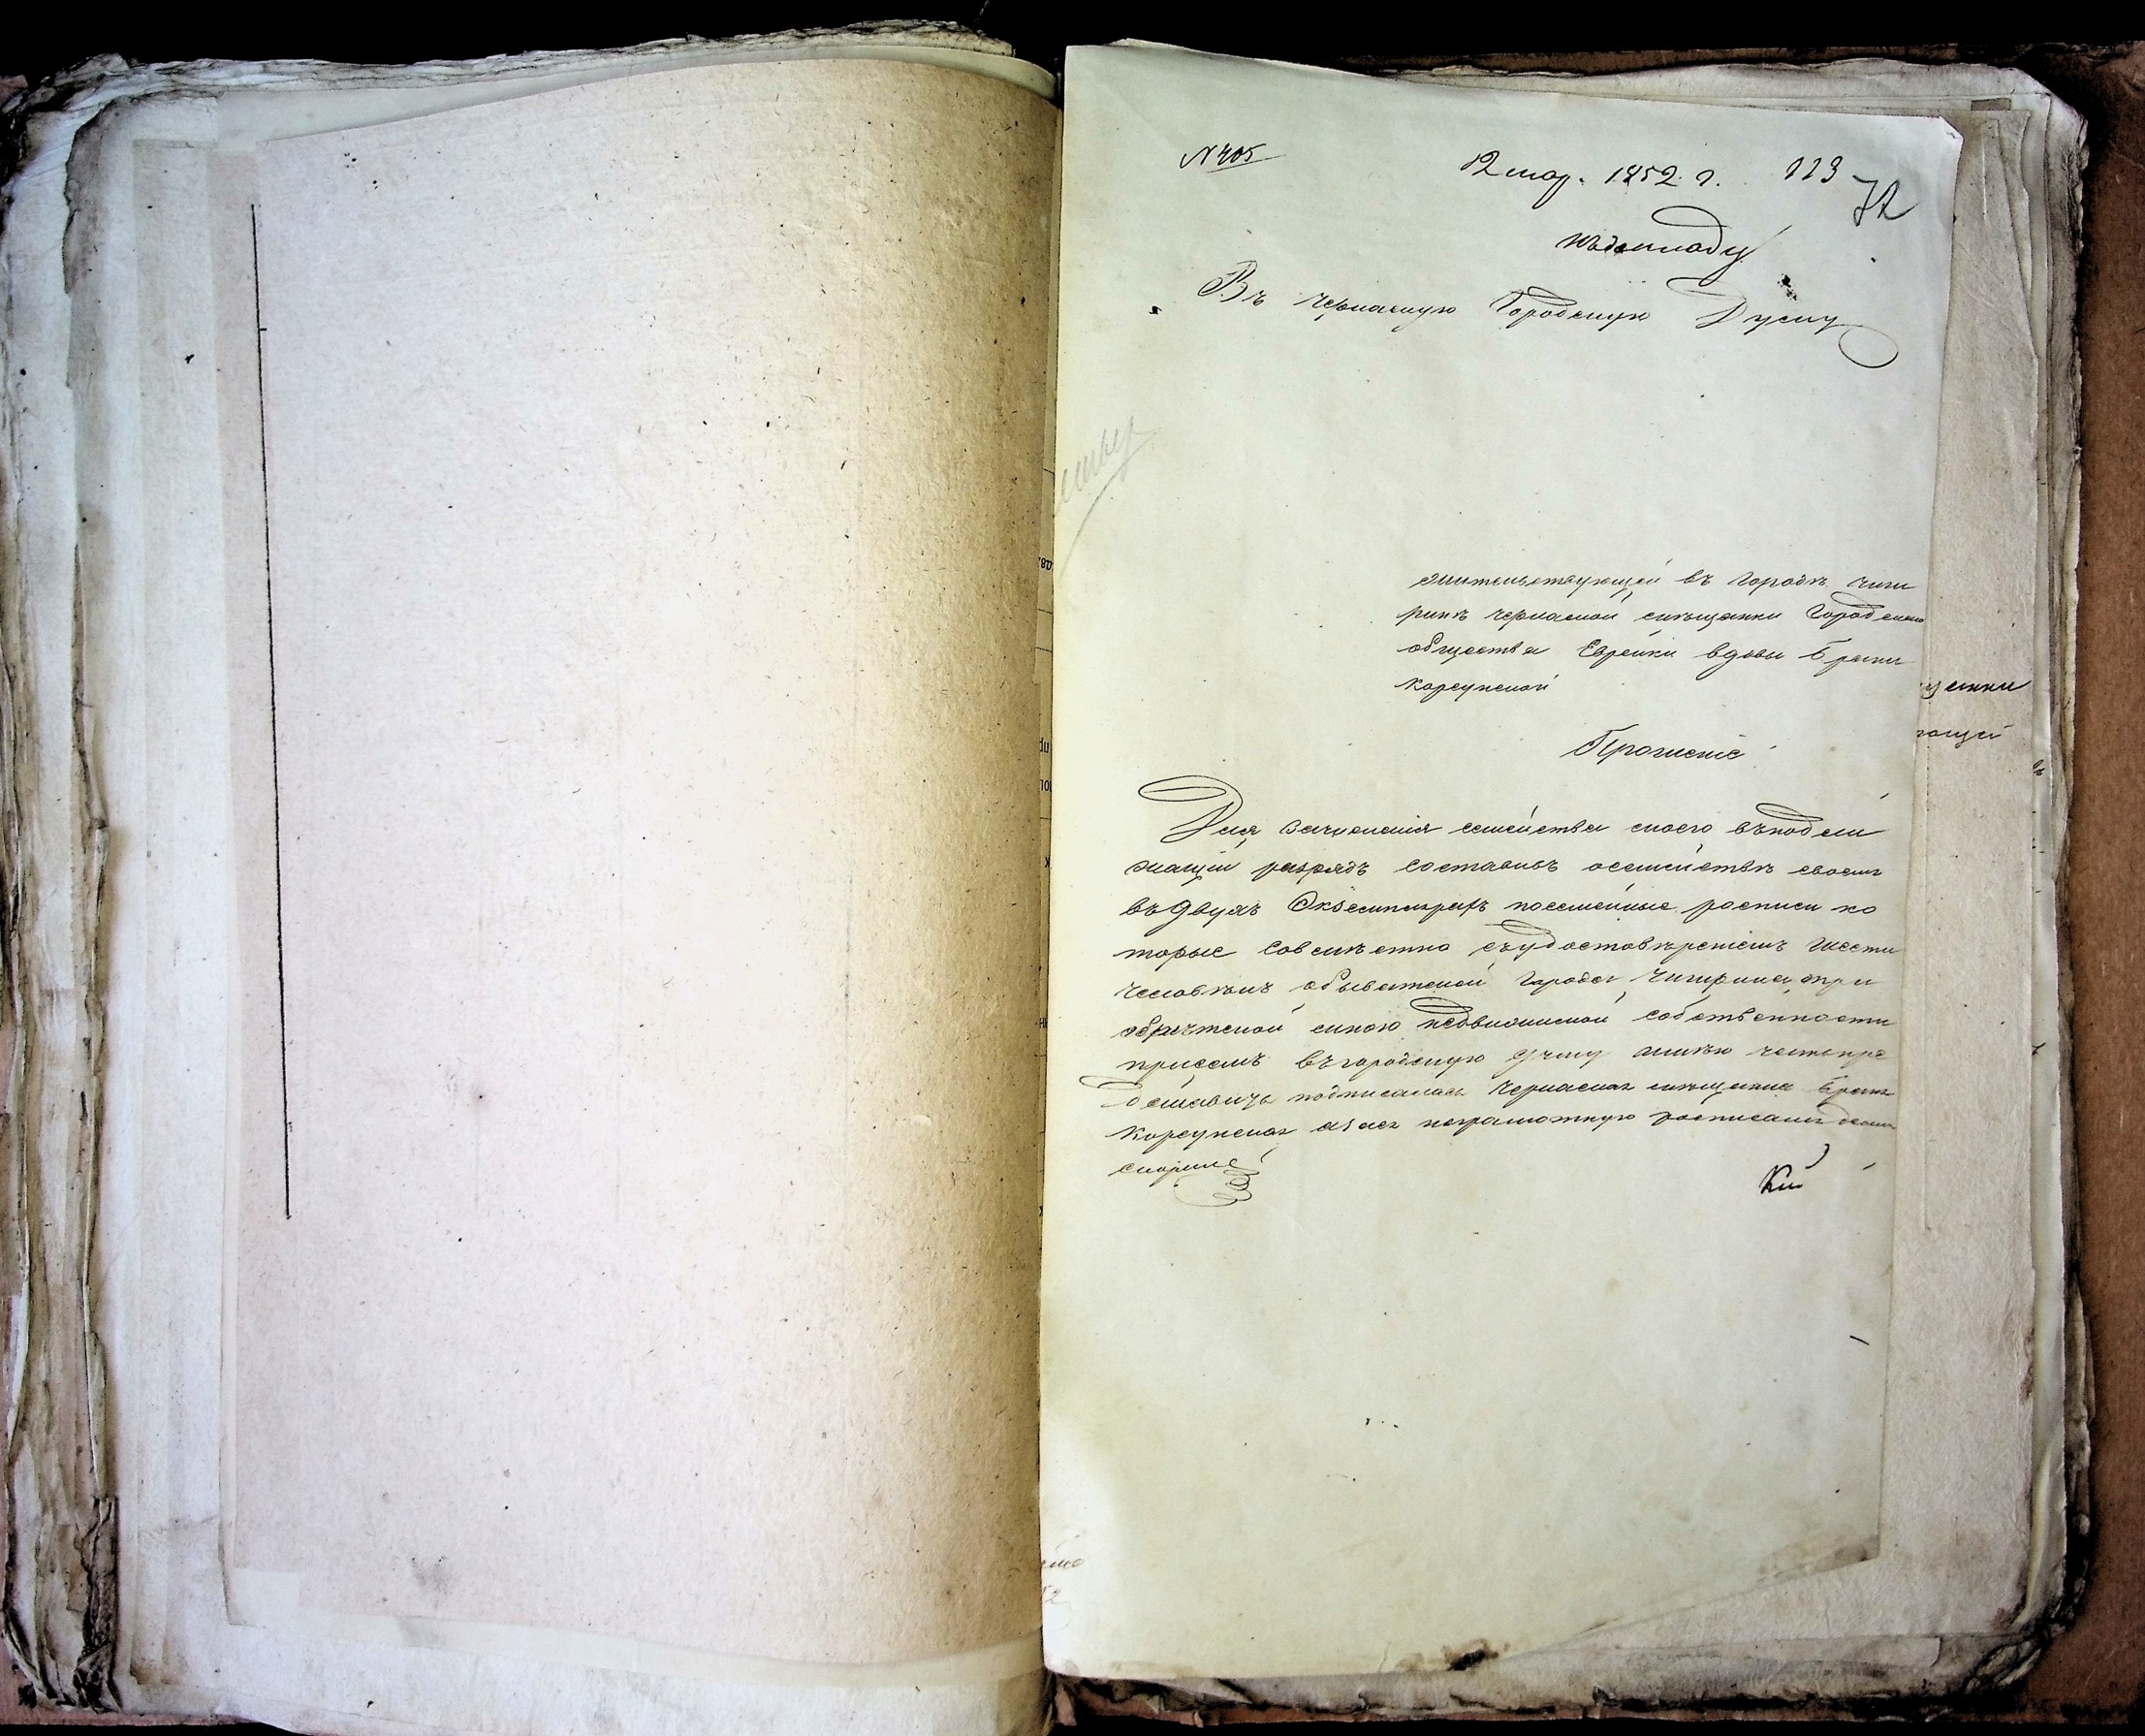 № 405
12 мар. 1852. г. 113
72
къ докладу
Въ Черкаскую Городскую Думу
жительствующей въ городѣ Чиги
ринѣ Черкаской мѣщанки Городскаго
общества Еврейки вдовы Брани
Корсунской
Прошеніе
Для зачисленія семейства моего въ подле
жащій разрядъ составивъ о семействѣ своемъ
въ двухъ Экземплярахъ посемейные росписи ко
торые совмѣстно съ удостовѣреніемъ шести
человѣкъ обывателей города Чигирина о при
обрѣтеной мною недвижимой собственности
при семъ въ городскую думу имѣю честь пре
дставить подписалась Черкаская мѣщанка Браня
Корсунская а за нея неграмотную росписался